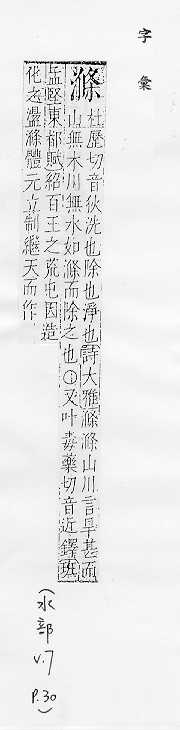 字彙
滌
杜歷切音狄洗也除也淨也詩大雅滌滌山川言旱甚而
山無木川無水如滌而除之也〇又叶毒藥切音近鐸班
孟堅東都賦紹百王之荒屯因造
化之盪滌體元立制繼天而作
(水部
V.7
P.30)